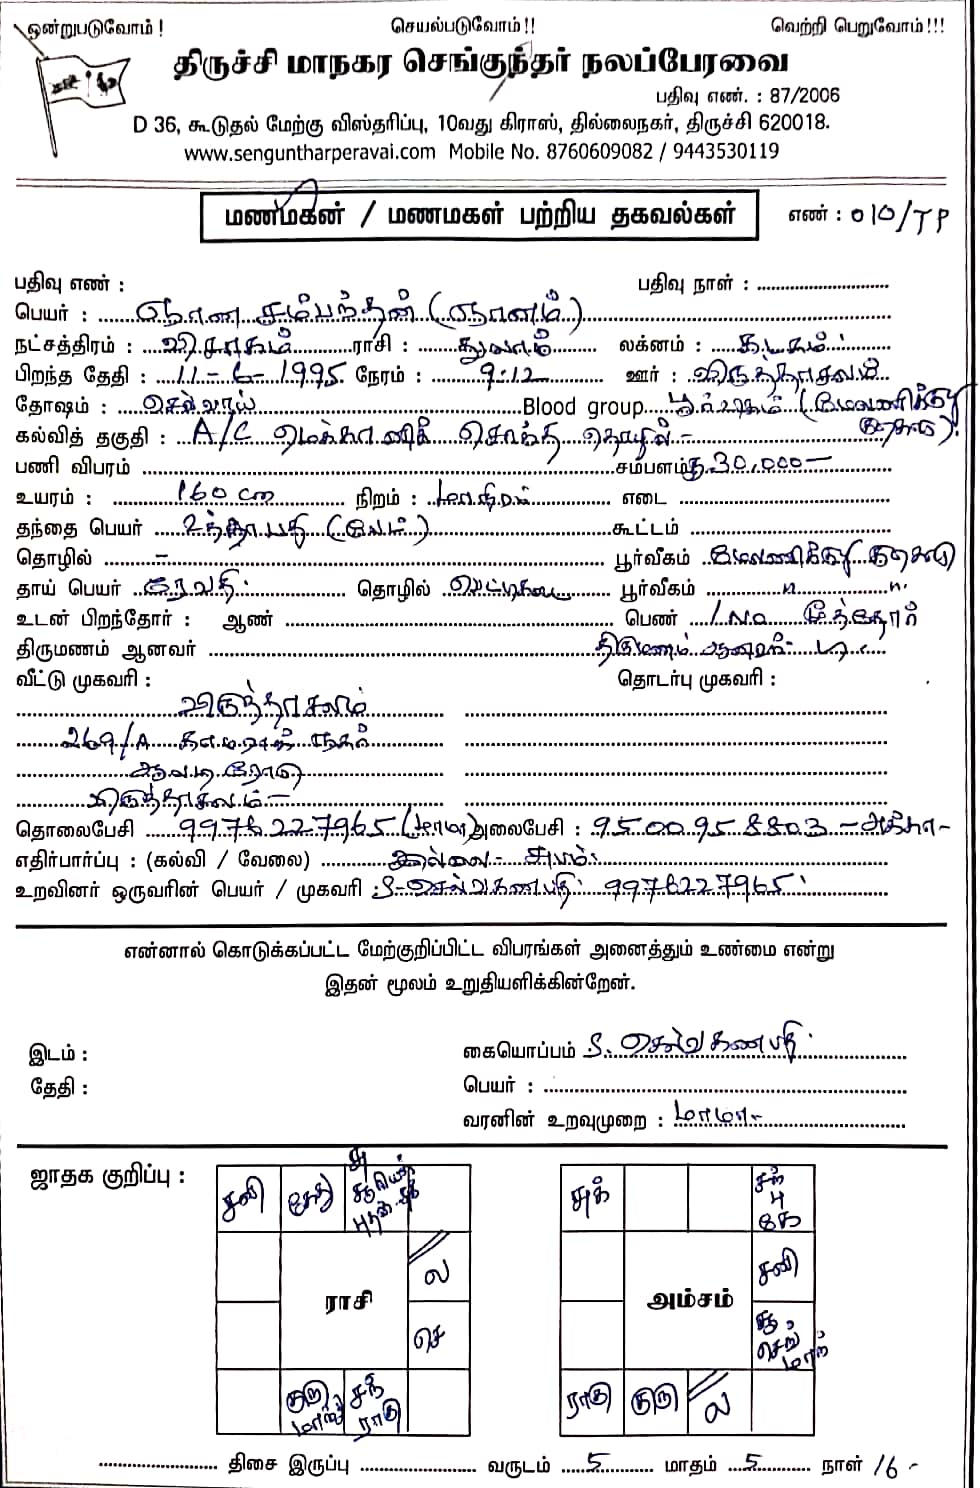 ஒன்றுபடுவோம் ! செயல்படுவோம் !! வெற்றி பெறுவோம் !!!
திருச்சி மாநகர செங்குந்தர் நலப்பேரவை
பதிவு எண். : 87/2006
D 36, கூடுதல் மேற்கு விஸ்தரிப்பு, 10வது கிராஸ், தில்லைநகர், திருச்சி 620018.
www.senguntharperavai.com Mobile No. 8760609082 / 9443530119
மணமகன் / மணமகள் பற்றிய தகவல்கள் எண் : 010/TP
பதிவு எண் : பதிவு நாள் :
பெயர் : ஞான சம்பந்தன் (ஞானம்)
நட்சத்திரம் : விசாகம் ராசி : துலாம் லக்னம் : கடகம்
பிறந்த தேதி : 11-6-1995 நேரம் : 9:12 ஊர் : விருத்தாசலம்
தோஷம் : செவ்வாய் Blood group பூர்வீகம்
கல்வித் தகுதி : A/C மெக்கானிக் சொந்த தொழில் -
பணி விபரம் சம்பளம் ரூ 30,000-
உயரம் : 160 cm நிறம் : மாநிறம் எடை
தந்தை பெயர் கூட்டம்
தொழில் - பூர்வீகம்
தாய் பெயர் ரேவதி தொழில் பூர்வீகம் " "
உடன் பிறந்தோர் : ஆண் பெண் 1 No மூத்தோர்
திருமணம் ஆனவர் திருமணம் ஆனவர்
வீட்டு முகவரி : தொடர்பு முகவரி :
விருத்தாசலம்
269/A காமராஜ் நகர்
ரோடு
விருத்தாசலம் -
தொலைபேசி 9976227965 (மாமா) அலைபேசி : 9500958803 - அக்கா -
எதிர்பார்ப்பு : (கல்வி / வேலை) இல்லை - சுபம்
உறவினர் ஒருவரின் பெயர் / முகவரி : S. செல்வகணபதி 9976227965
என்னால் கொடுக்கப்பட்ட மேற்குறிப்பிட்ட விபரங்கள் அனைத்தும் உண்மை என்று
இதன் மூலம் உறுதியளிக்கின்றேன்.
இடம் : கையொப்பம் S. செல்வகணபதி
தேதி : பெயர் :
வரனின் உறவுமுறை : மாமா -
ஜாதக குறிப்பு :
சனி கேது சூரியன் புதன் சுக் சந் பு கே
ல சனி
ராசி அம்சம்
செ சூ செவ் மாந்
குரு மாந் சந் ராகு ராகு குரு ல
திசை இருப்பு வருடம் 5 மாதம் 5 நாள் 16 -